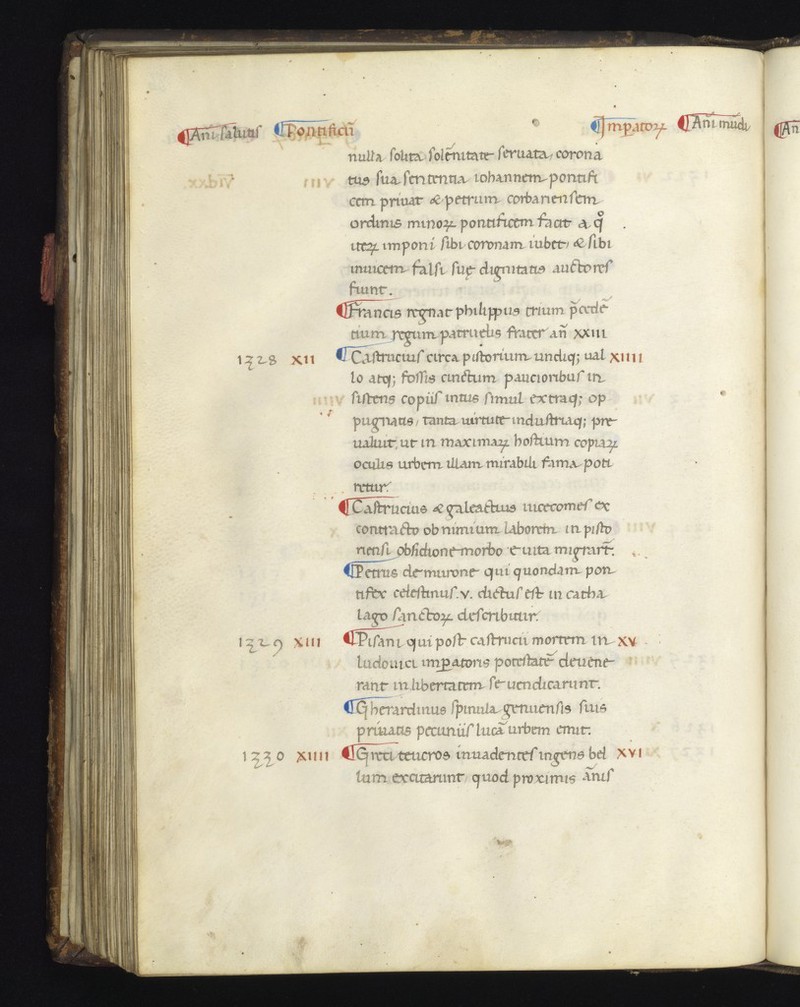 ¶Ani salutis ¶Pontificũ ¶Impatoꝝ ¶Ani mudi
nulla solita solẽnitate seruata, corona
tus sua sententia iohannem pontifi
cem priuat & petrum corbariensem
ordinis minoꝝ pontificem facit a q̊
iteꝝ imponi sibi coronam iubet, & sibi
inuicem falsi suę dignitatis auctores
fiunt.
¶Francis regnat philippus trium p̃cedẽ
tium regum patruelis frater añ XXIII
1328 XII ¶Castrucius circa pistorium undiq; ual XIIII
lo atq; fossis cinctum paucioribus in
sistens copiis intus simul extraq; op
pugnatis, tanta uirtute industriaq; pre
ualuit ut in maximaꝝ hostium copiaꝝ
oculis urbem illam mirabili fama poti
retur.
¶Castrucius & galeactius uicecomes ex
contracto ob nimium laborem in pisto
riensi obsidione morbo e uita migrart̃.
¶Petrus de murone qui quondam pon
tifex celestinus .v. dictus est in catha
lago sanctoꝝ describitur.
1329 XIII ¶Pisani qui post castrucii mortem in XV
ludouici imꝑatoris potestatẽ deuene
rant in libertatem se uendicarunt.
¶Gherardinus spinula genuensis suis
priuatis pecuniis lucã urbem emit.
1330 XIIII ¶Greci teucros inuadentes ingens bel XVI
lum excitarunt quod proximis ãnis